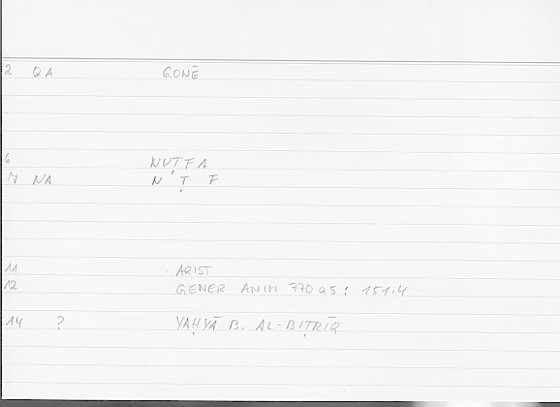 2 QA GONĒ
6 NUṬFA
7 NA N Ṭ F
11 ARIST
12 GENER ANIM 770 a5 : 151.4
14 ? YAḤYĀ B. AL-BIṬRĪQ